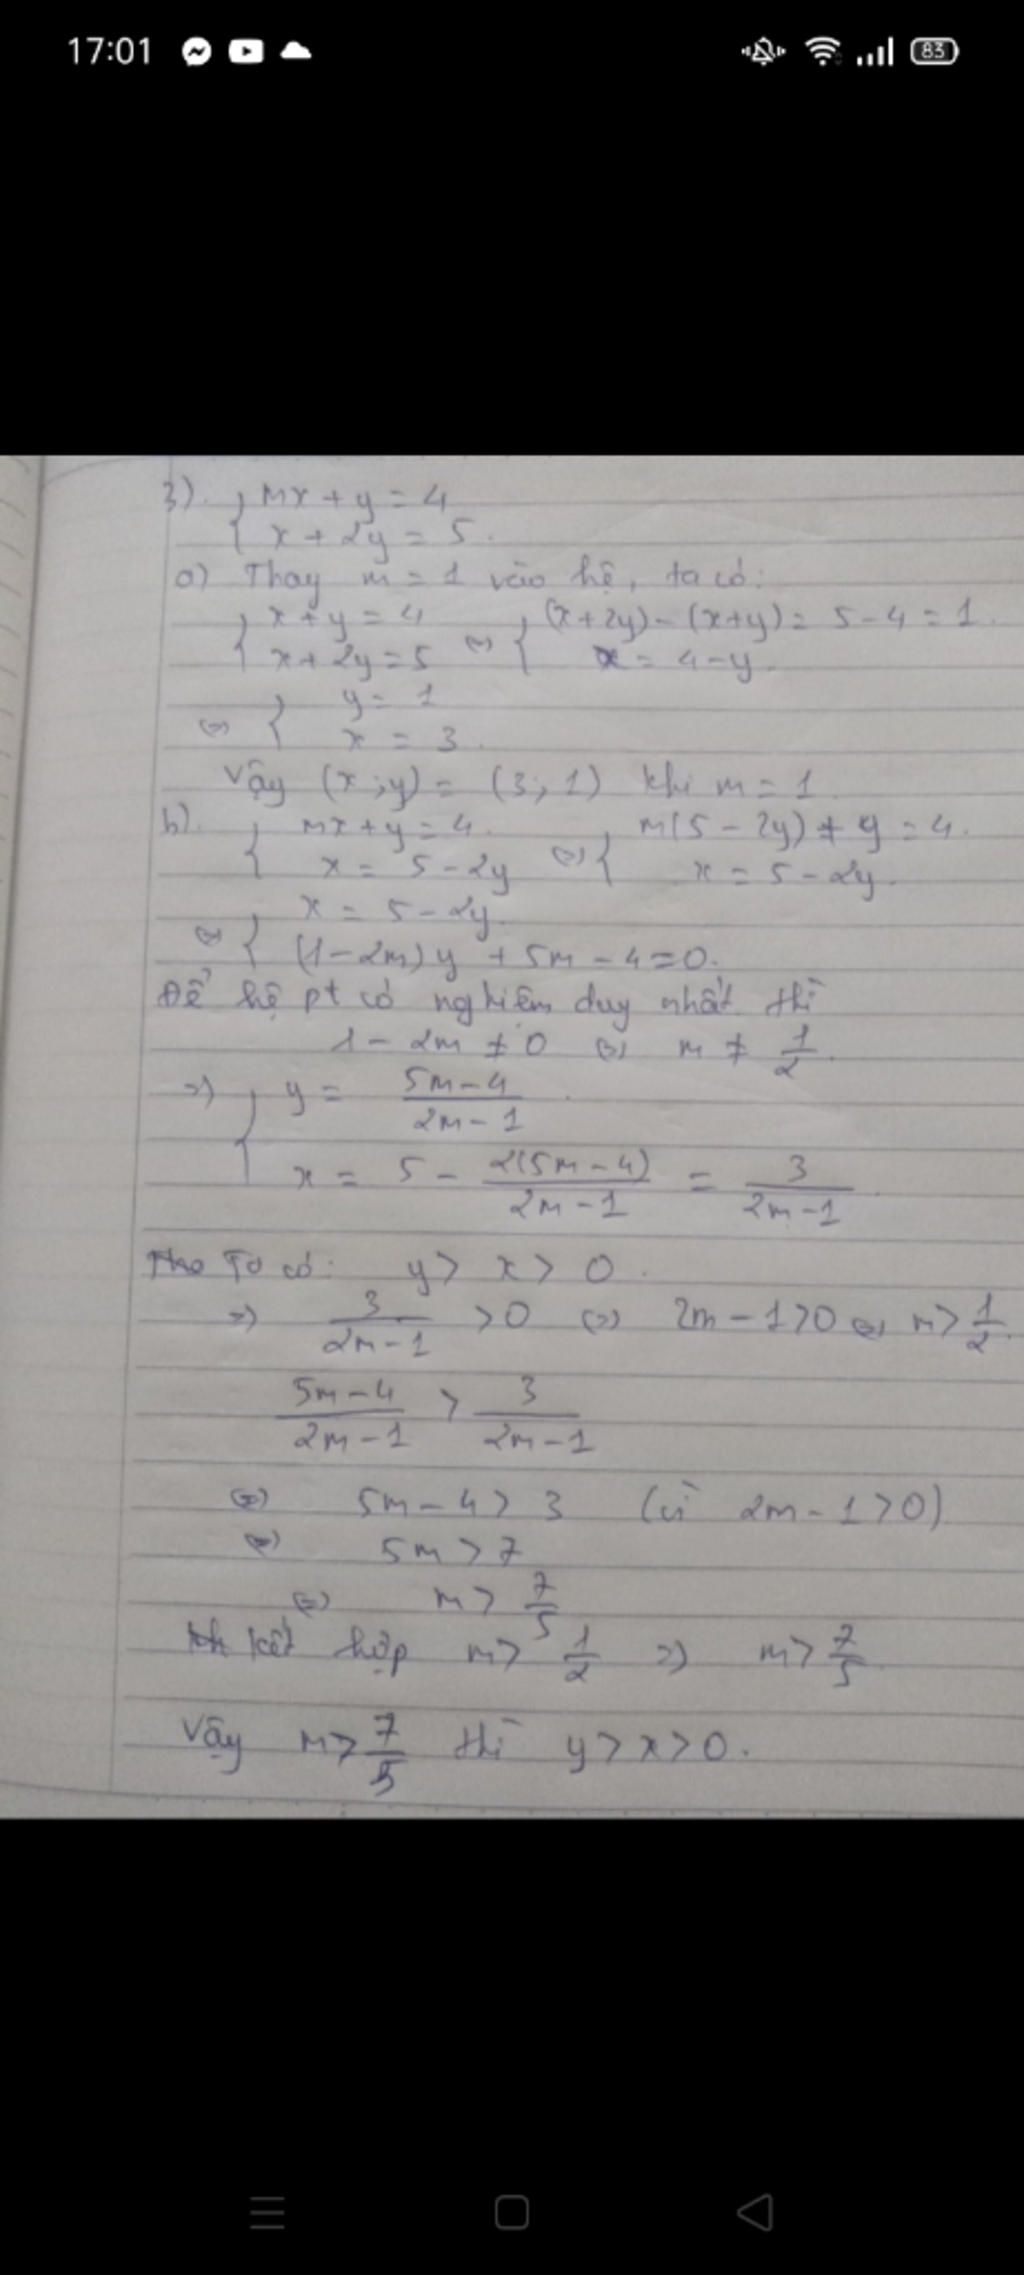 17:01
83
3). { mx + y = 4
x + 2y = 5.
a) Thay m = 1 vào hệ, ta có:
{ x + y = 4 { (x+2y) - (x+y) = 5 - 4 = 1.
x + 2y = 5 <=> x = 4 - y.
<=> { y = 1
x = 3.
Vậy (x;y) = (3; 1) khi m = 1.
b). { mx + y = 4. { m(5 - 2y) + y = 4.
x = 5 - 2y <=> x = 5 - 2y.
<=> { x = 5 - 2y.
(1 - 2m) y + 5m - 4 = 0.
Để hệ pt có nghiệm duy nhất thì
1 - 2m ≠ 0 <=> m ≠ 1/2.
=> { y = (5m - 4)/(2m - 1).
x = 5 - 2(5m - 4)/(2m - 1) = 3/(2m - 1).
Ta có: y > x > 0.
=> 3/(2m - 1) > 0 <=> 2m - 1 > 0 <=> m > 1/2.
(5m - 4)/(2m - 1) > 3/(2m - 1)
<=> 5m - 4 > 3 (vì 2m - 1 > 0)
<=> 5m > 7
<=> m > 7/5
kết hợp m > 1/2 => m > 7/5
Vậy m > 7/5 thì y > x > 0.